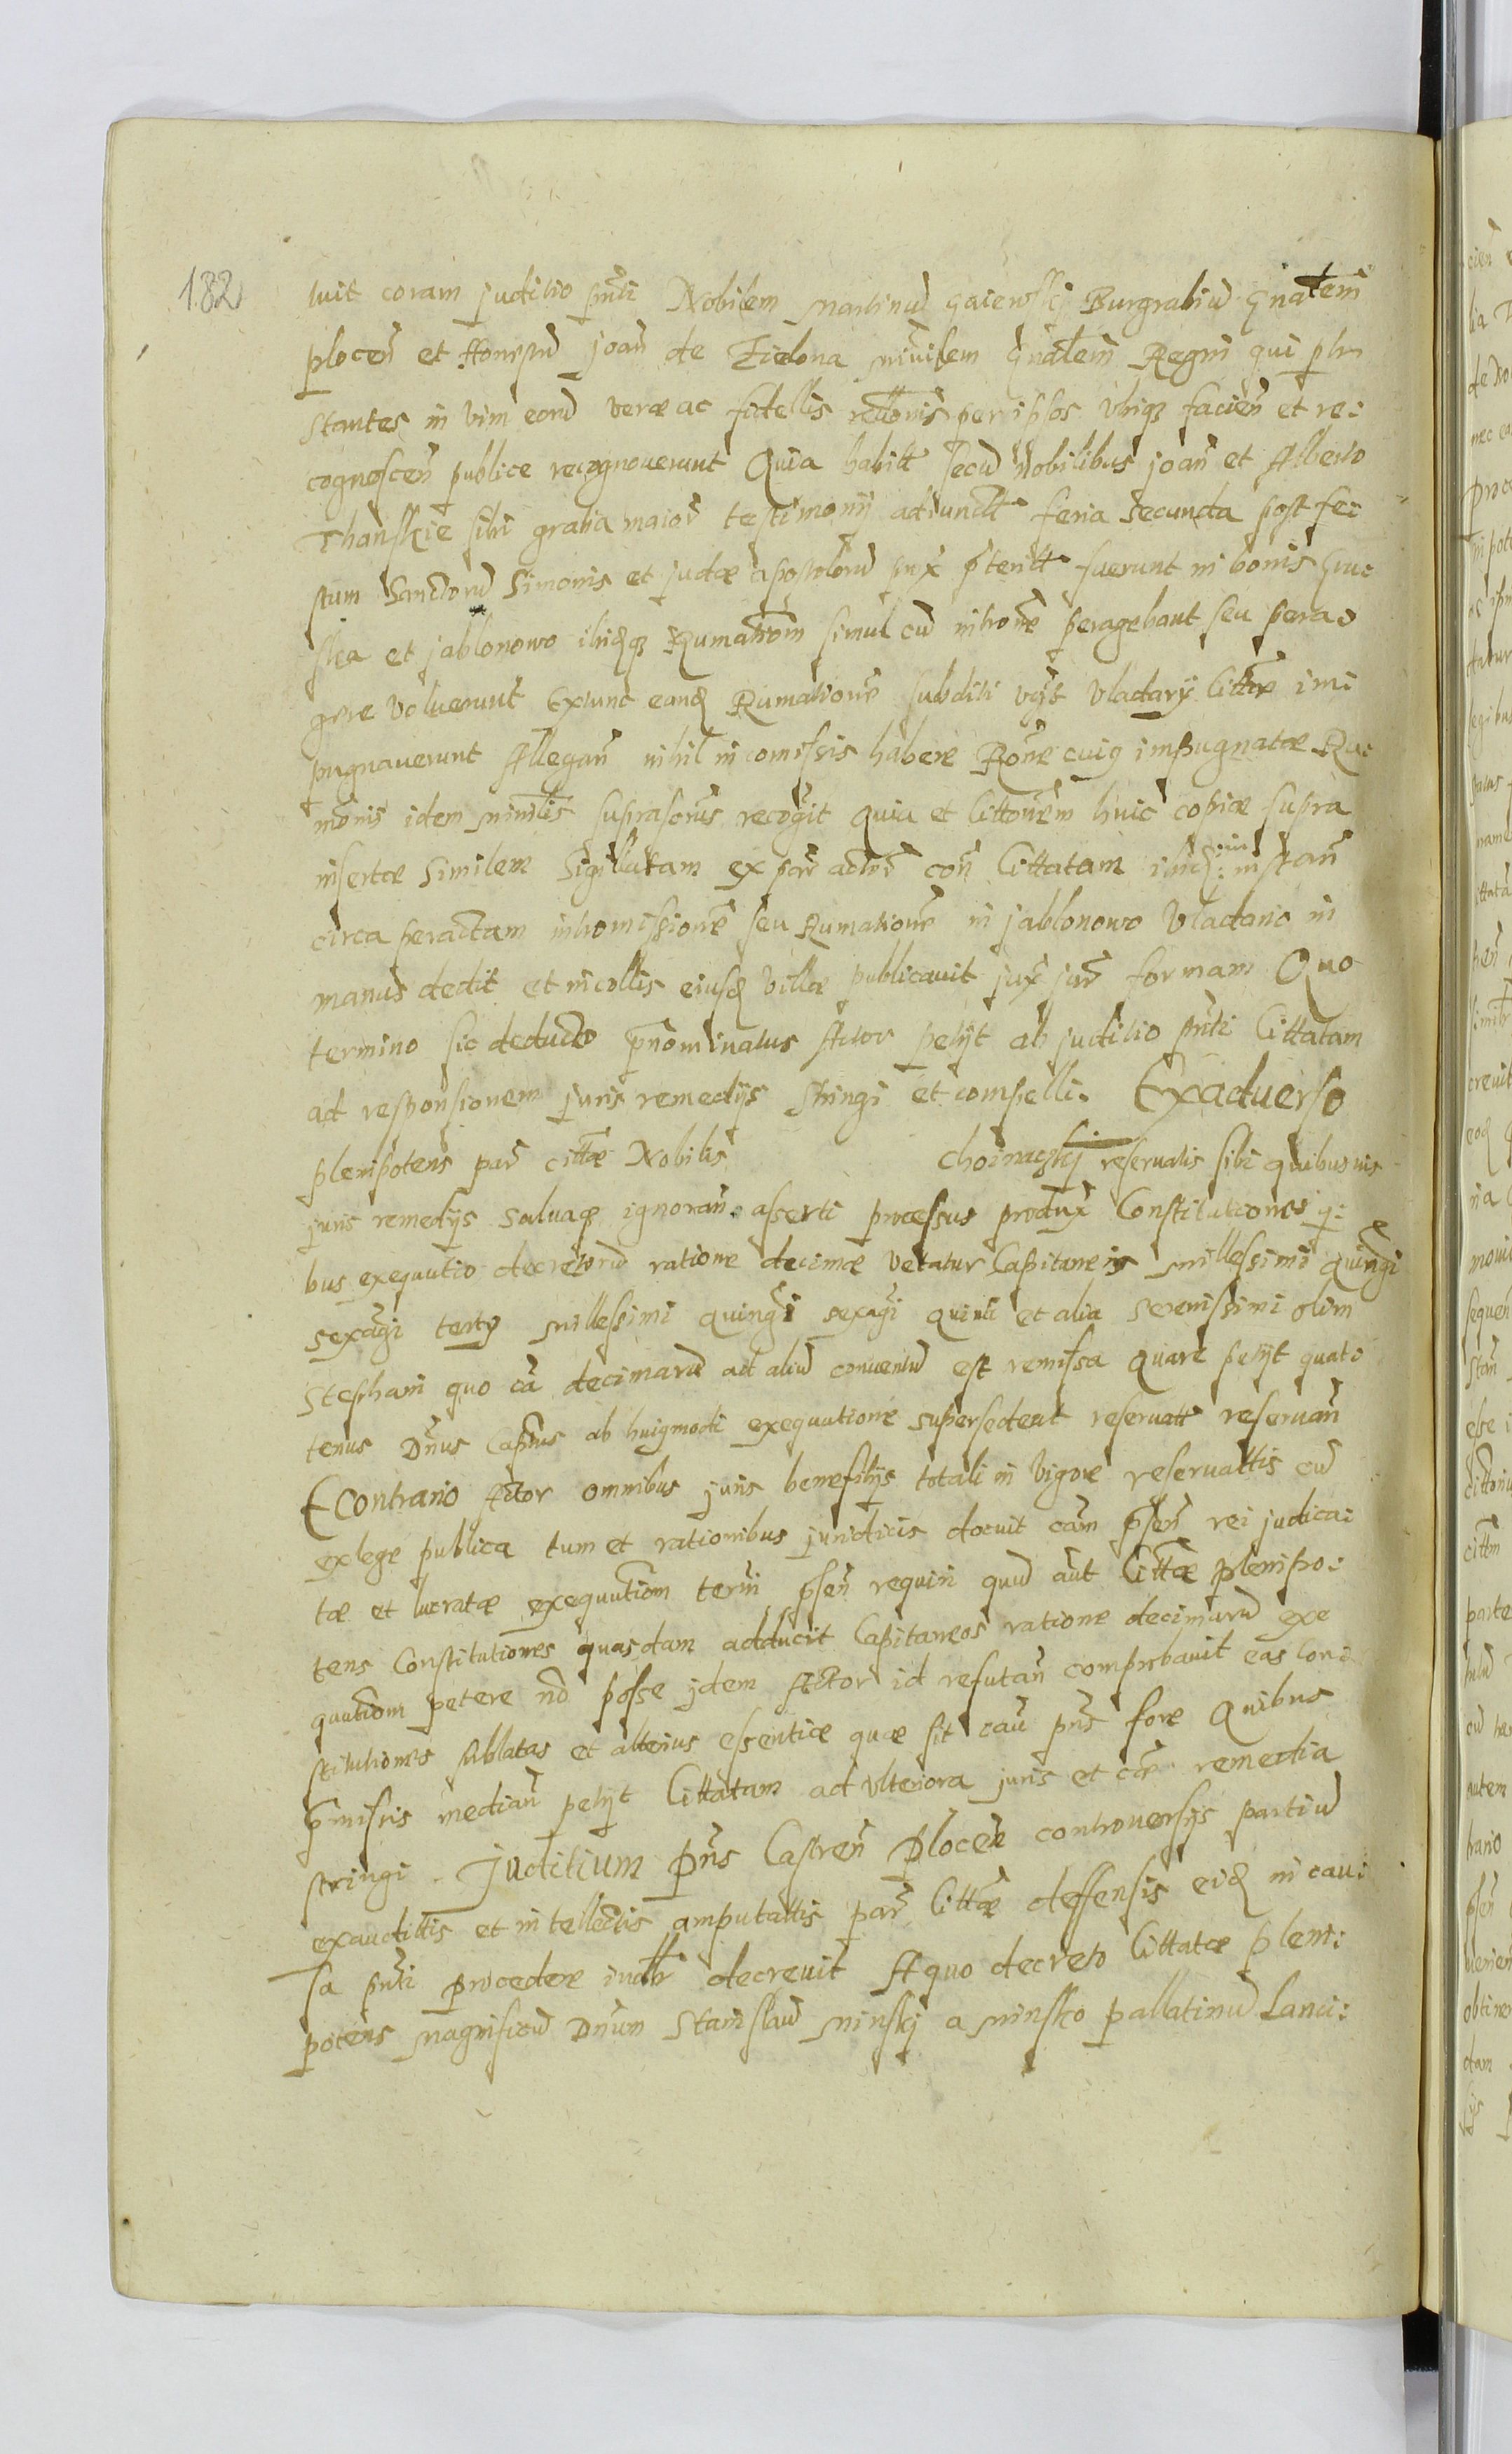 182
tuit coram juditio pnti Nobilem Martinu Gaiewskij Burgrabiu Gnalem
plocen et Honestu Joan de Zielona minilem Gnalem Regni qui
stantes in vim eoru veræ ac fidellis rellonis per ipsos vtiqz facien et re:
cognoscen publice recognoverunt Quia habitt secu Nobilibus Joan et Alberto
Thanskie sibi gratia maior testimonij adiunctt feria secunda post fe:
stum Sanctoru Simonis et Judæ apostoloru prx pteritt fuerunt in bonis Gru:
ska et Jablonowo ibidqz Rumatiom simul cu introne peragebant seu pera:
gere voluerunt Extunc eand Rumatione subditi vgs Vladarij Cittæ im:
pugnaverunt Allegan nihil in comissis habere Rone cuig impugnatæ Ru:
monis idem minilis suprascrus recogit Quia et Cittonem huic copiæ supra
insertæ similem Sigillatam ex par actor con Cittatam ibid: instan
circa peractam intromissione seu Rumatione in Jablonowo Vladario in
manus dedit et incollis eiusd villæ publicavit jux jur formam Quo
termino sic deducto pnominatus Actor petijt ab juditio pnti Cittatam
ad responsionem juris remedijs stringi et compelli. Exadverso
plenipotens par cittæ Nobilis Choinaczkij reservatis sibi quibusvis
juris remedijs salvaqz ignoran asserti processus produx Constitutiones q:
bus exequutio decretoru ratione decimæ vetatur Capitaneis millessimi quingi
sexagi terty millessimi quingi sexagi quinti et alia Serenissimi olim
Stephani quo ca decimaru ad aliu conventu est remissa Quare petijt quat:
tenus Dnus Capnus ab huigmodi exequutione supersedeat reservatt reservan
E Contrario Actor omnibus juris benefitijs totali in vigore reservattis cu
ex lege publica tum et rationibus juridicis docuit cam psen rei judica:
tæ et lucratæ exequutiom termi psen requiri quu aut Cittæ plenipo:
tens Constitutiones quasdam adducit Capitaneos ratione decimaru exe
quutiom petere no posse idem Actor id refutan comprobavit eas Con:
stitutiones sublatas et alterius essentiæ quæ sit cau pns fore Quibus
pmissis median petijt Cittatam ad ulteriora juris et cæ remedia
stringi. Juditium pns Castren Plocen controversijs partiu
exaudittis et intellectis amputattis par Cittæ deffensis eid in cau:
sa pnti procedere decrevit A quo decreto Cittatæ pleni:
potens Magnificu Dnum Stanislau Minskj a Minsko pallatinu Lanci: